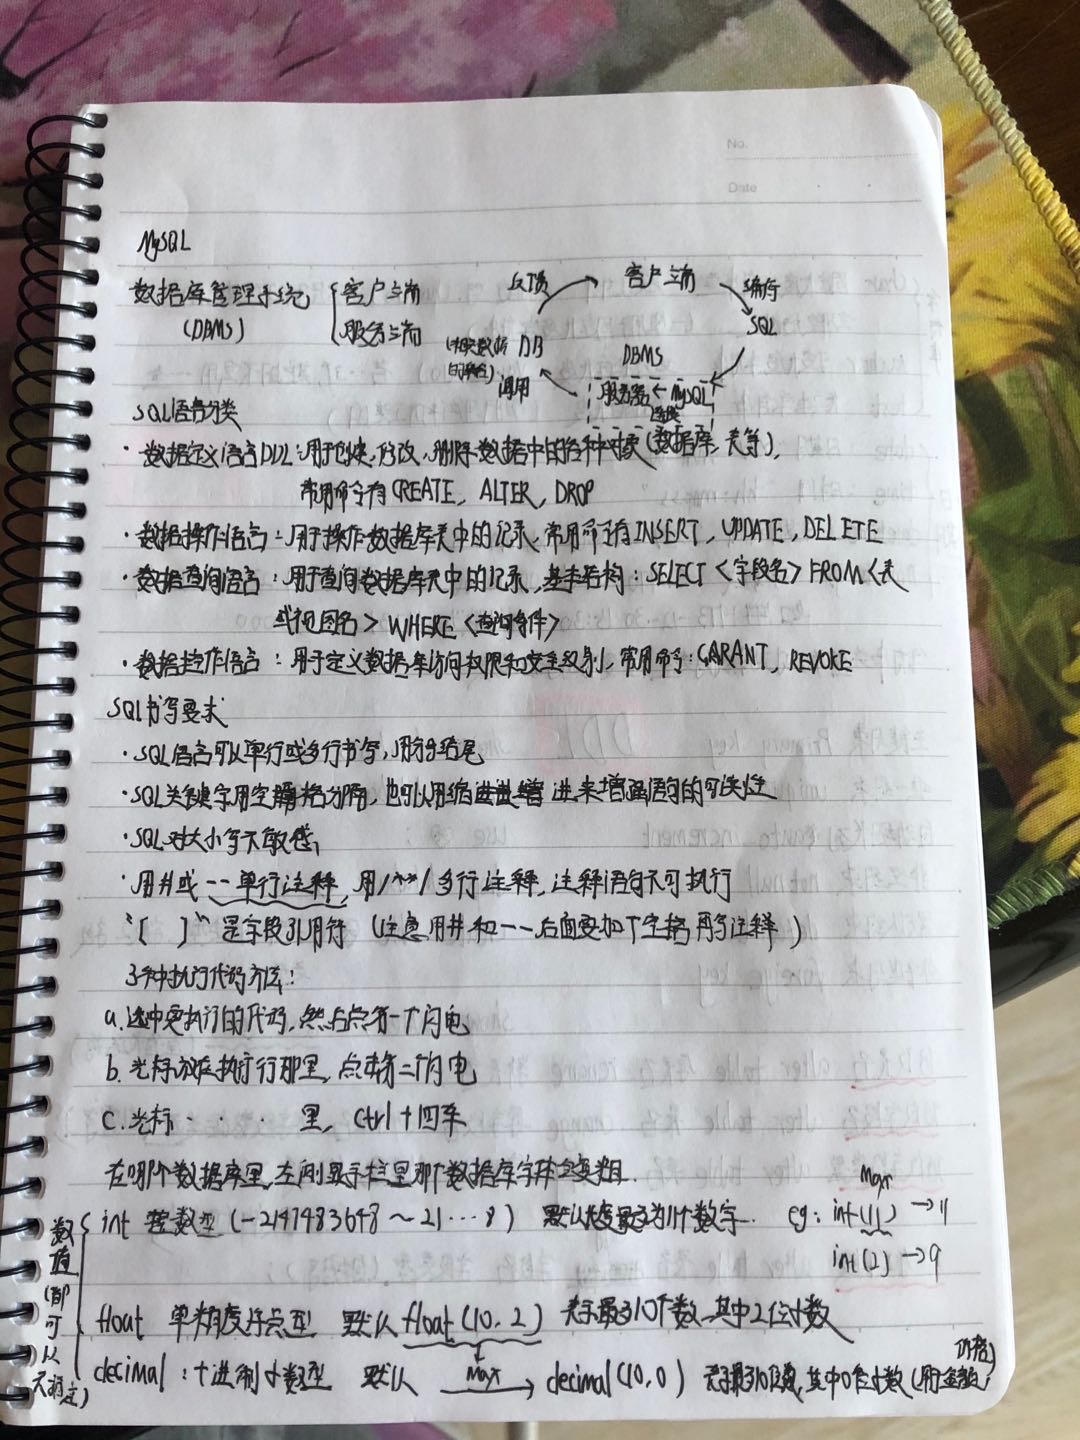 No.
Date
MySQL
数据库管理系统 { 客户端
(DBMS) 服务端
反馈 → 客户端 编行
SQL
(相关数据的集合) DB DBMS
调用 服务器 ← MySQL
连接
SQL语言分类
· 数据定义语言DDL:用于创建,修改,删除数据中的各种对象(数据库,表等),
常用命令有CREATE, ALTER, DROP
· 数据操作语言:用于操作数据库表中的记录,常用命令有INSERT, UPDATE, DELETE
· 数据查询语言:用于查询数据库表中的记录,基本结构:SELECT <字段名> FROM <表
或视图名> WHERE <查询条件>
· 数据控作语言:用于定义数据库访问权限和安全级别,常用命令:GARANT, REVOKE
SQL书写要求
· SQL语言可以单行或多行书写,用分号结尾
· SQL关键字用空格分隔,也可以用缩进来增强语句的可读性
· SQL对大小写不敏感
· 用#或--单行注释,用/**/多行注释,注释语句不可执行
"[ ]" 是字段引用符 (注意用#和--后面要加个空格再写注释)
3种执行代码方法:
a.选中要执行的代码,然后点第一个闪电
b.光标放在执行行那里,点击第二个闪电
c.光标 · · · 里, Ctrl+回车
在哪个数据库里,左侧显示栏里那个数据库字体会变粗.
数值(都可以不指定)
int 整数型 (-2147483648~21···8) 默认长度最多为11个数字. eg: int(11) →11
Max
int(2) →9
float 单精度浮点型 默认float(10,2) 表示最多10个数,其中2位小数
decimal:十进制小数型 默认 Max → decimal(10,0) 表示最多10位数,其中0位小数(用金额,价格)